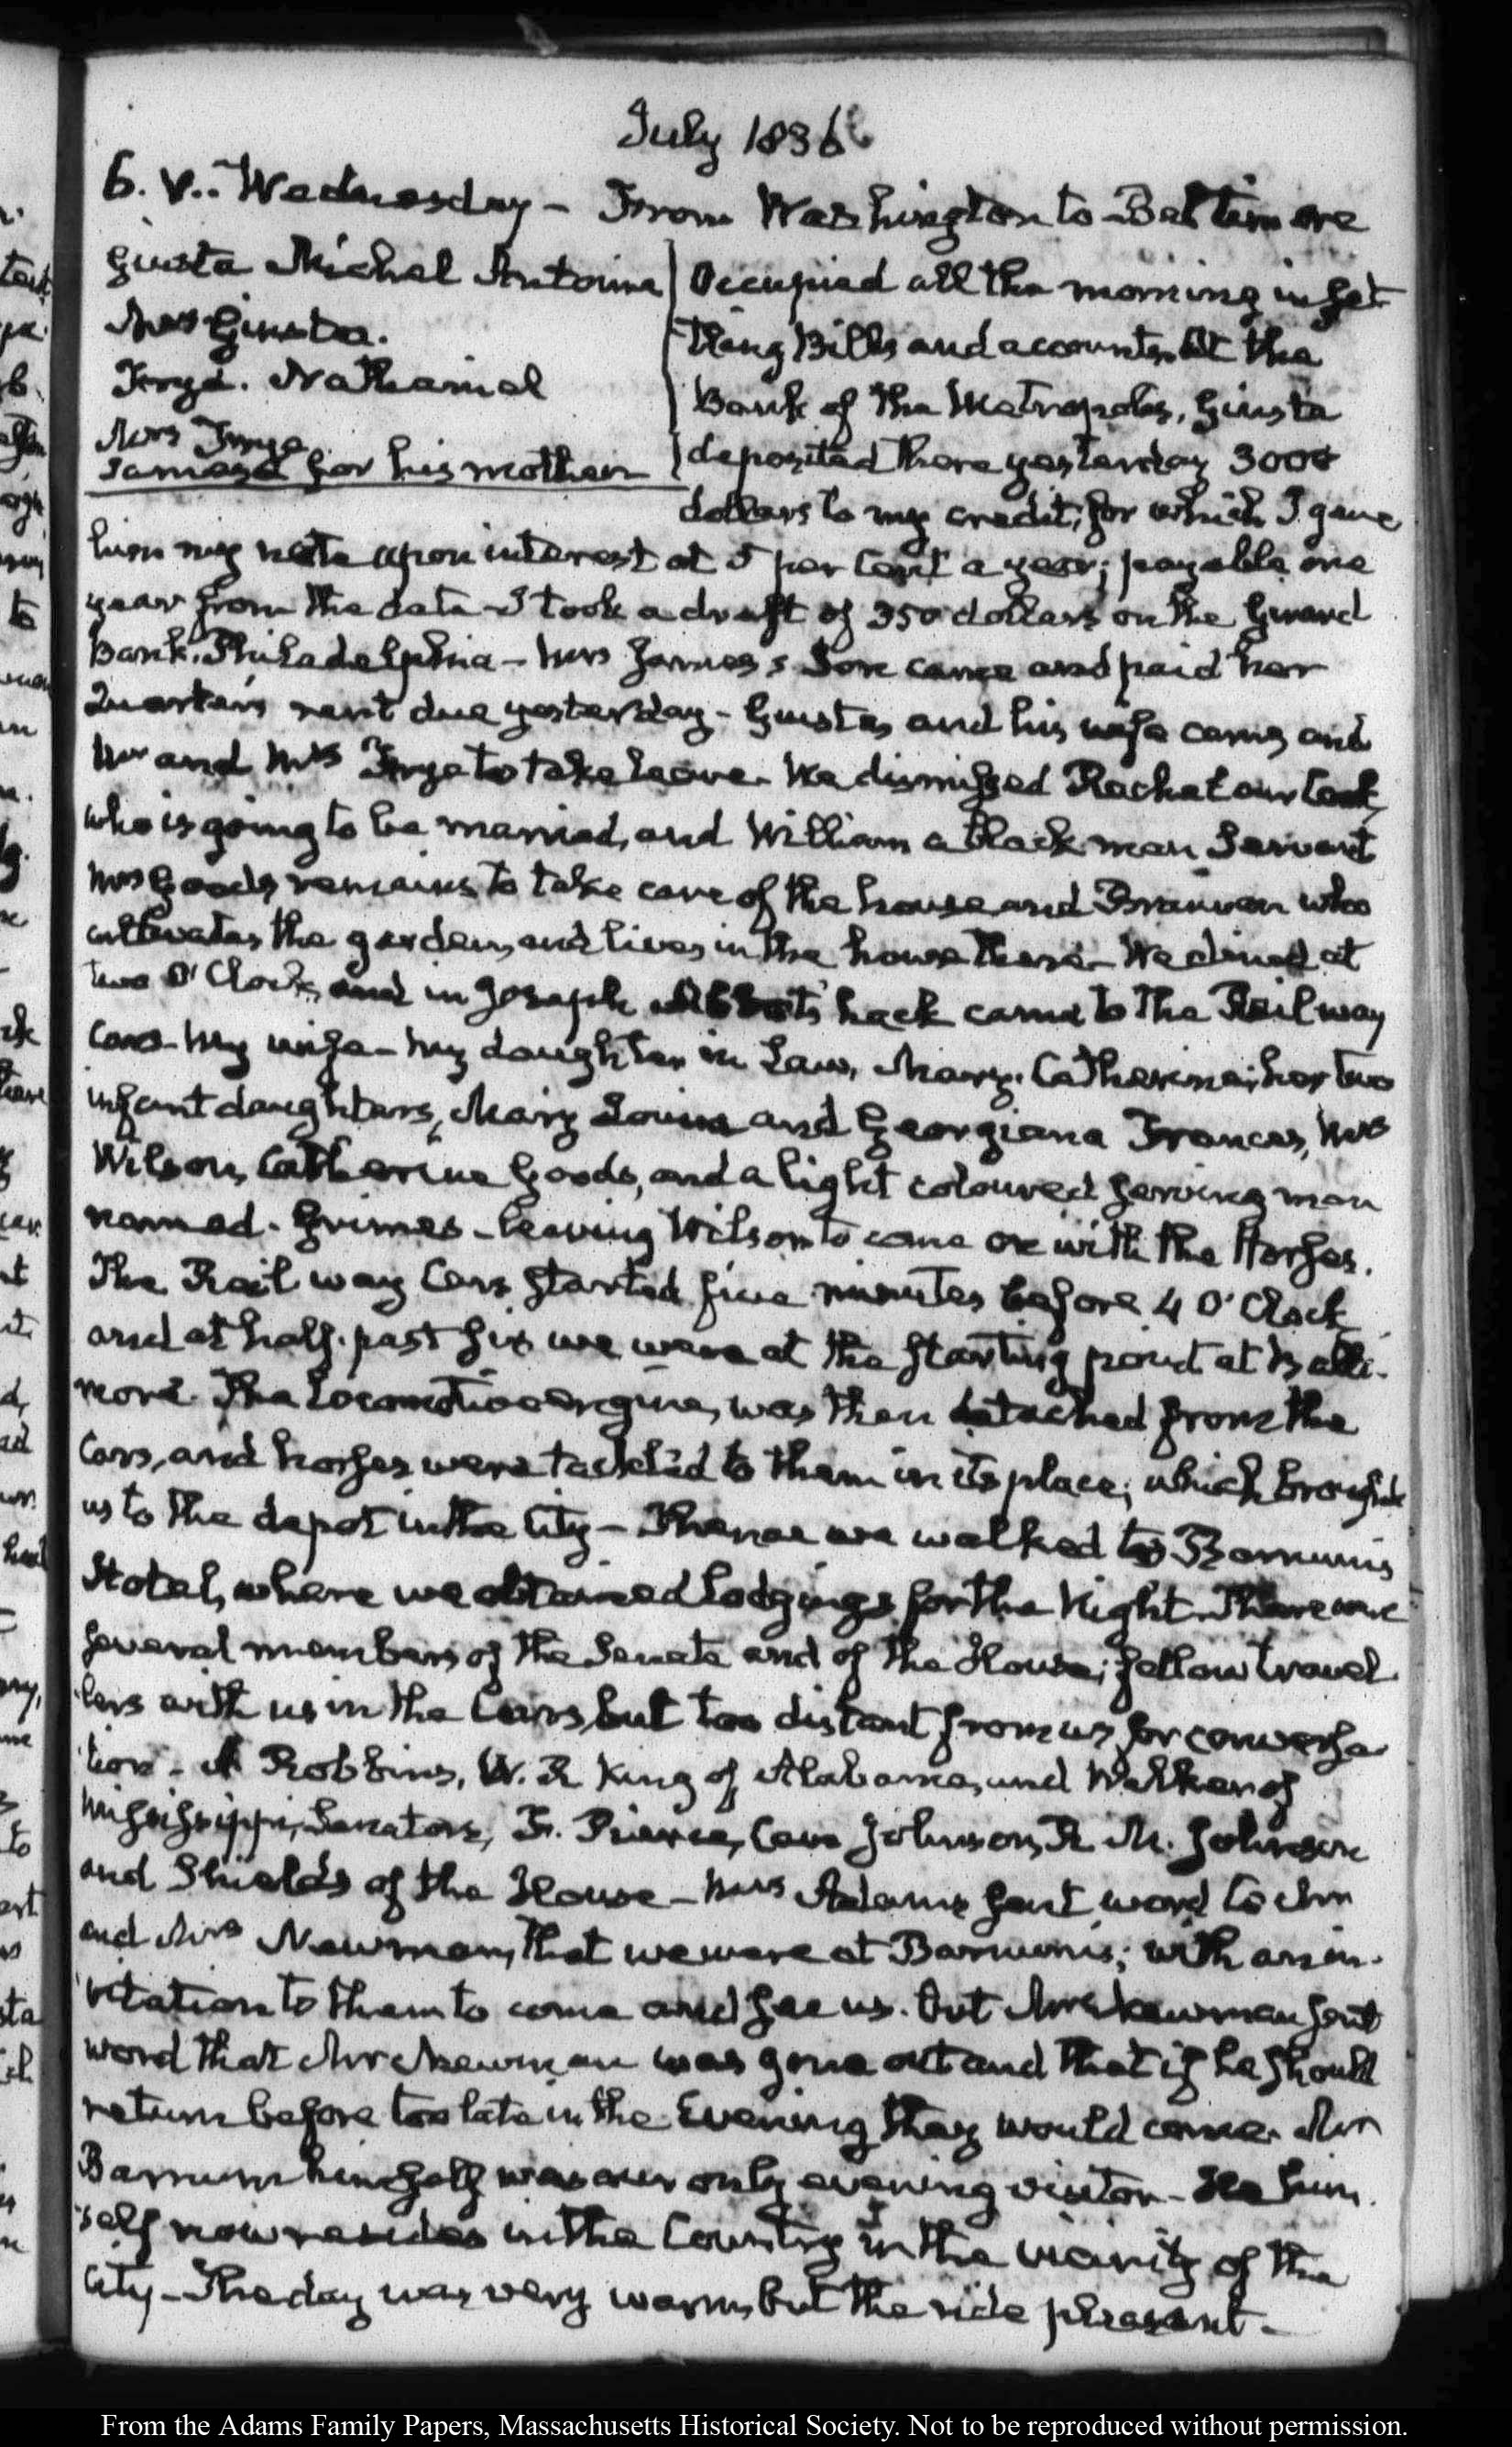 July 1836
6. V.. Wednesday - From Washington to Baltimore
Giusta Michel Antoine
Mrs Giusta.
Frye. Nathaniel
Mrs Frye
James's for his mother
Occupied all the morning in set-
tling Bills and accounts. At the
Bank of the Metropolis, Giusta
deposited there yesterday 3000
dollars to my credit, for which I gave
him my note upon interest at 5 per Cent a year; payable one
year from the date - I took a draft of 350 dollars on the Girard
Bank, Philadelphia - Mrs James's Son came and paid her
Quarter's rent due yesterday - Giusta, and his wife came, and
Mr and Mrs Frye to take leave. We dismissed Rachel our Cook,
who is going to be married, and William a black man Servant
Mrs Goods remains to take care of the house and who
cultivates the garden, and lives in the house there - We dined at
two O'Clock, and in Joseph hack came to the Rail way
Cars - My wife - My daughter in Law, Mary. Catherine; her two
infant daughters, Mary Louisa and Georgiana Frances, Mrs
Wilson, Catherine Goods, and a light coloured serving man
named. Grimes - leaving Wilson to come on with the Horses.
The Rail way Cars started five minutes before 4 O'Clock
and at half. past six we were at the starting point at Balti-
more. The Locomotive engine, was then detached from the
Cars, and horses were tackled to them in its place; which brought
us to the depot in the City - Thence we walked to Barnum's
Hotel, where we obtained lodgings for the Night. There were
several members of the Senate and of the House; fellow travel-
lers with us in the Cars, but too distant from us for conversa-
tion - A Robbins, W. R King of Alabama, and Walker of
Mississippi, Senators, F. Pierce, Cave Johnson, R. M. Johnson
and Shields of the House - Mrs Adams sent word to Mr
and Mrs Newman, that we were at Barnum's; with an in-
vitation to them to come and see us. But Mrs Newman sent
word that Mr Newman was gone out and that if he should
return before too late in the Evening they would come. Mr
Barnum himself was our only evening visitor - He him-
self now resides in the Country in the vicinity of the
City - The day was very warm, but the ride pleasant -
From the Adams Family Papers, Massachusetts Historical Society. Not to be reproduced without permission.